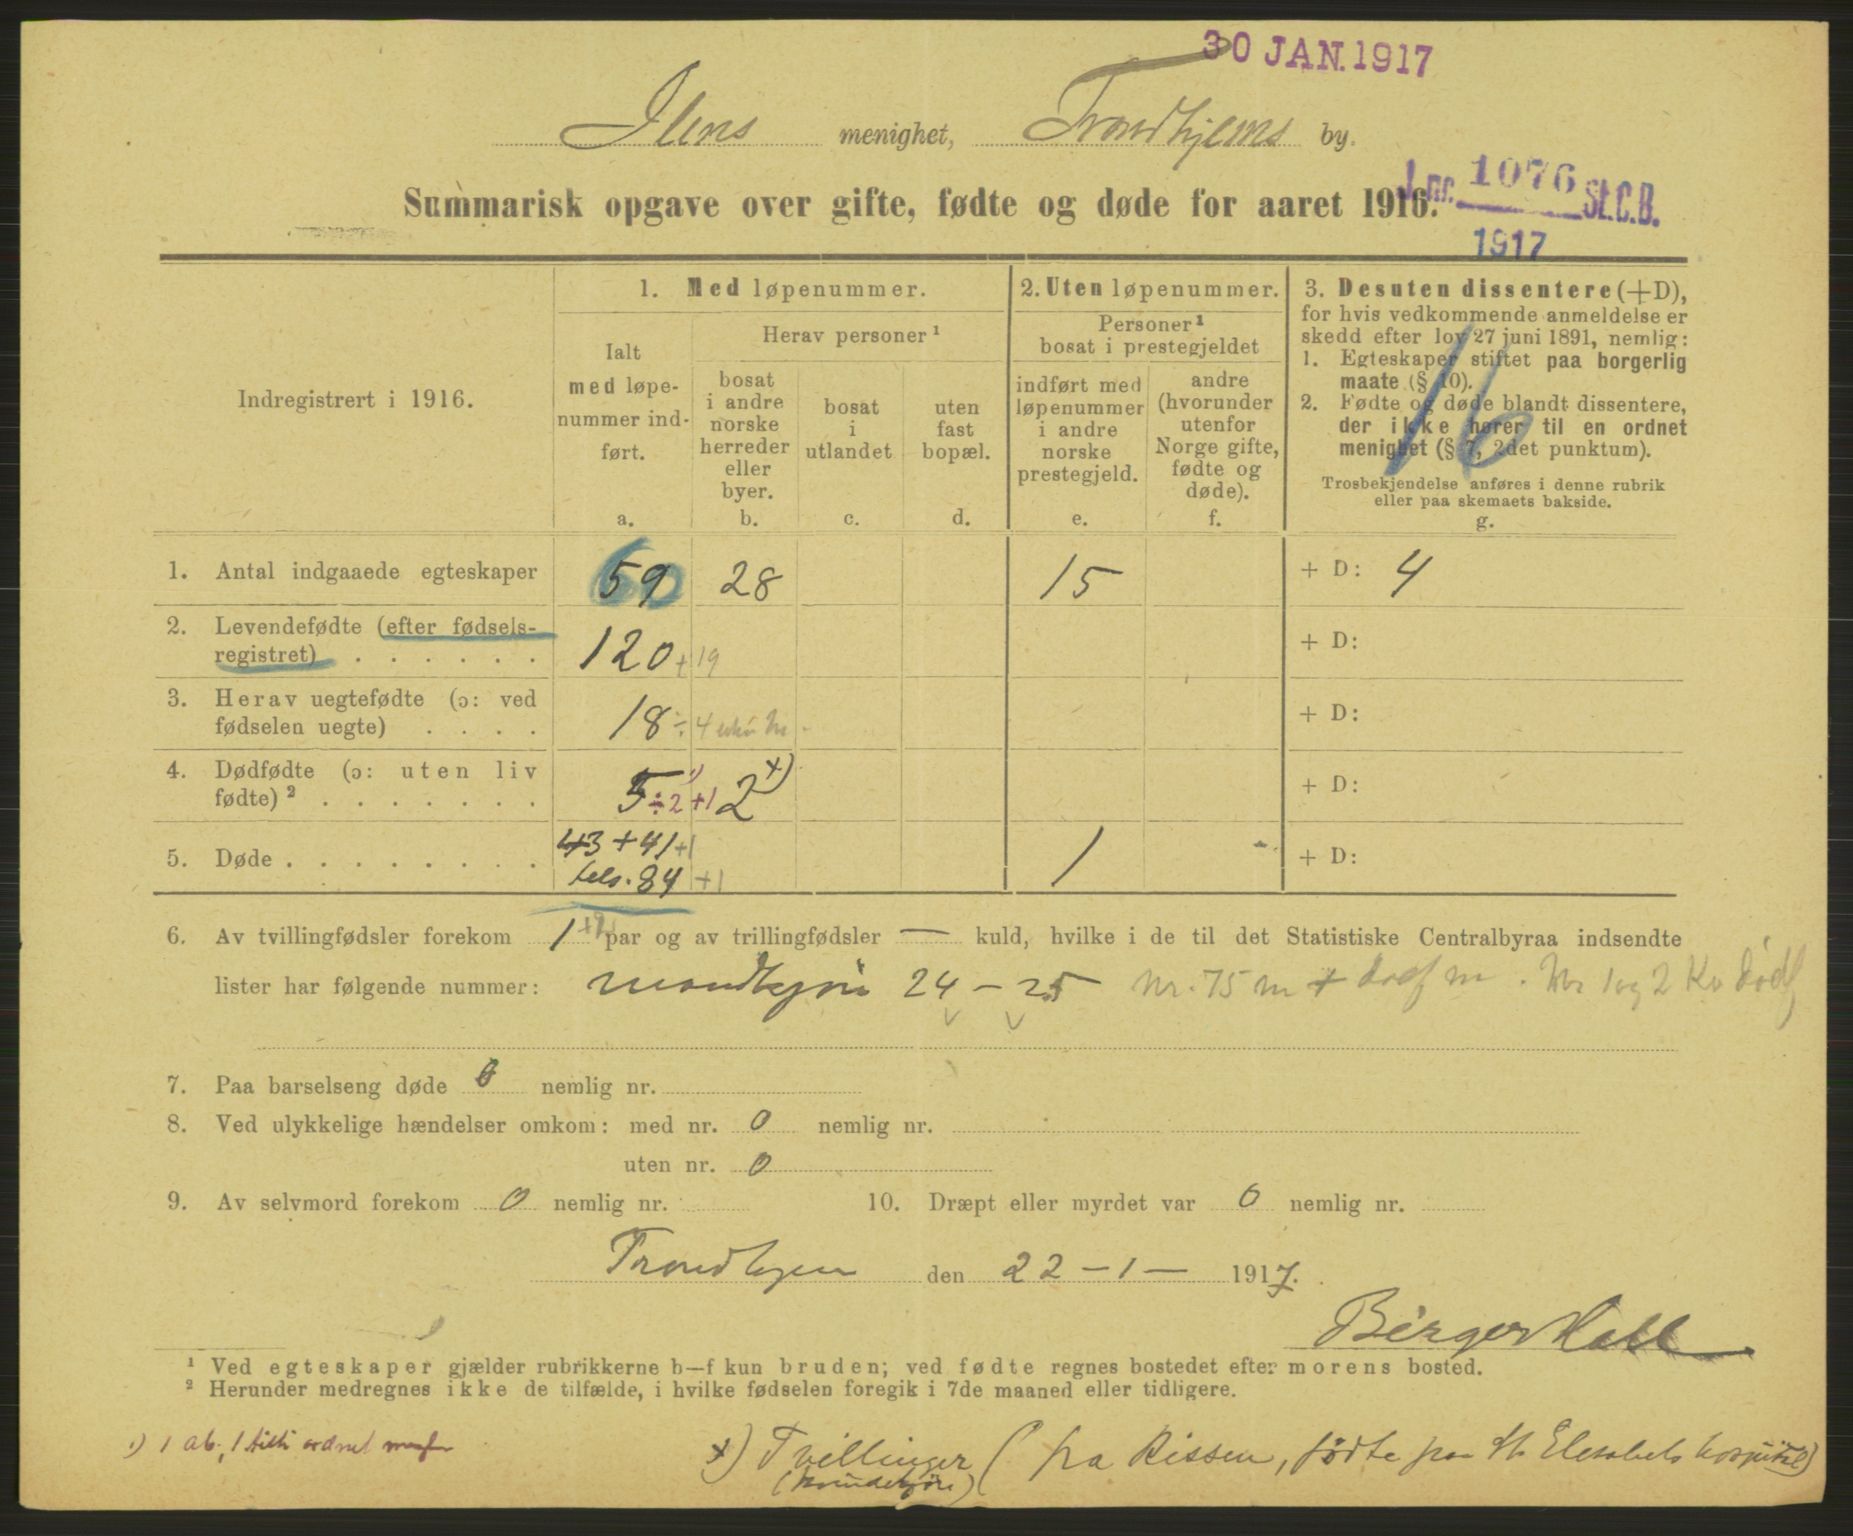 30 JAN. 1917
Ilens menighet, Trondhjems by.
J. nr. 1076 St.C.B.
1917
Summarisk opgave over gifte, fødte og døde for aaret 1916.
Indregistrert i 1916.
1. Med løpenummer.
Ialt
med løpe-
nummer ind-
ført.
a.
Herav personer ¹
bosat
i andre
norske
herreder
eller
byer.
b.
bosat
i
utlandet
c.
uten
fast
bopæl.
d.
2. Uten løpenummer.
Personer ¹
bosat i prestegjeldet
indført med
løpenummer
i andre
norske
prestegjeld.
e.
andre
(hvorunder
utenfor
Norge gifte,
fødte og
døde).
f.
3. Desuten dissentere (+D),
for hvis vedkommende anmeldelse er
skedd efter lov 27 juni 1891, nemlig:
1. Egteskaper stiftet paa borgerlig
maate (§ 10).
2. Fødte og døde blandt dissentere,
der ikke hører til en ordnet
menighet (§ 7, 2det punktum).
Trosbekjendelse anføres i denne rubrik
eller paa skemaets bakside.
g.
16
1. Antal indgaaede egteskaper 59 28 15 + D: 4
2. Levendefødte (efter fødsels-
registret) . . . . . . 120 + 19 + D:
3. Herav uegtefødte (ɔ: ved
fødselen uegte) . . . . 18 ÷ 4 + D:
4. Dødfødte (ɔ: uten liv
fødte) ² . . . . . . . 5 ÷ 2 ¹) + 1 2 x) + D:
43 + 41 + 1
5. Døde . . . . . . . . 1 + D:
tels. 84 + 1
6. Av tvillingfødsler forekom 1 + 2 par og av trillingfødsler — kuld, hvilke i de til det Statistiske Centralbyraa indsendte
lister har følgende nummer: mandkjøn 24 – 25 Nr. 75 m + dødf m. Nr 1 og 2 Kv dødf
7. Paa barselseng døde 0 nemlig nr.
8. Ved ulykkelige hændelser omkom: med nr. 0 nemlig nr.
uten nr. 0
9. Av selvmord forekom 0 nemlig nr. 10. Dræpt eller myrdet var 0 nemlig nr.
Trondhjem den 22 – 1 – 1917.
Birger Hall
¹ Ved egteskaper gjælder rubrikkerne b—f kun bruden; ved fødte regnes bostedet efter morens bosted.
² Herunder medregnes ikke de tilfælde, i hvilke fødselen foregik i 7de maaned eller tidligere.
¹) 1 ab., 1
x) Tvillinger ( fra Rissen, fødte paa St Elesabets hospital)
(kvindekjøn)